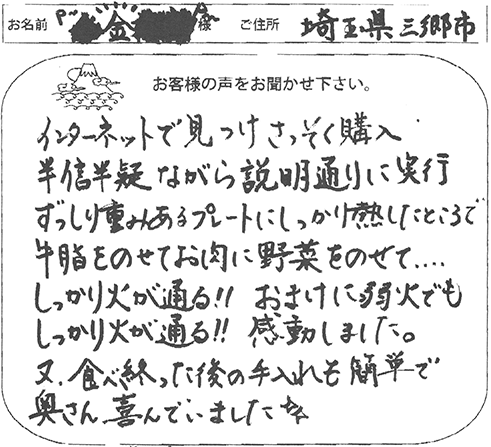 お名前 金 様 ご住所 埼玉県三郷市
お客様の声をお聞かせ下さい。
インターネットで見つけさっそく購入
半信半疑ながら説明通りに実行
ずっしり重みあるプレートにしっかり熱したところで
牛脂をのせてお肉に野菜をのせて....
しっかり火が通る!! おまけに弱火でも
しっかり火が通る!! 感動しました。
又、食べ終った後の手入れも簡単で
奥さん喜んでいました